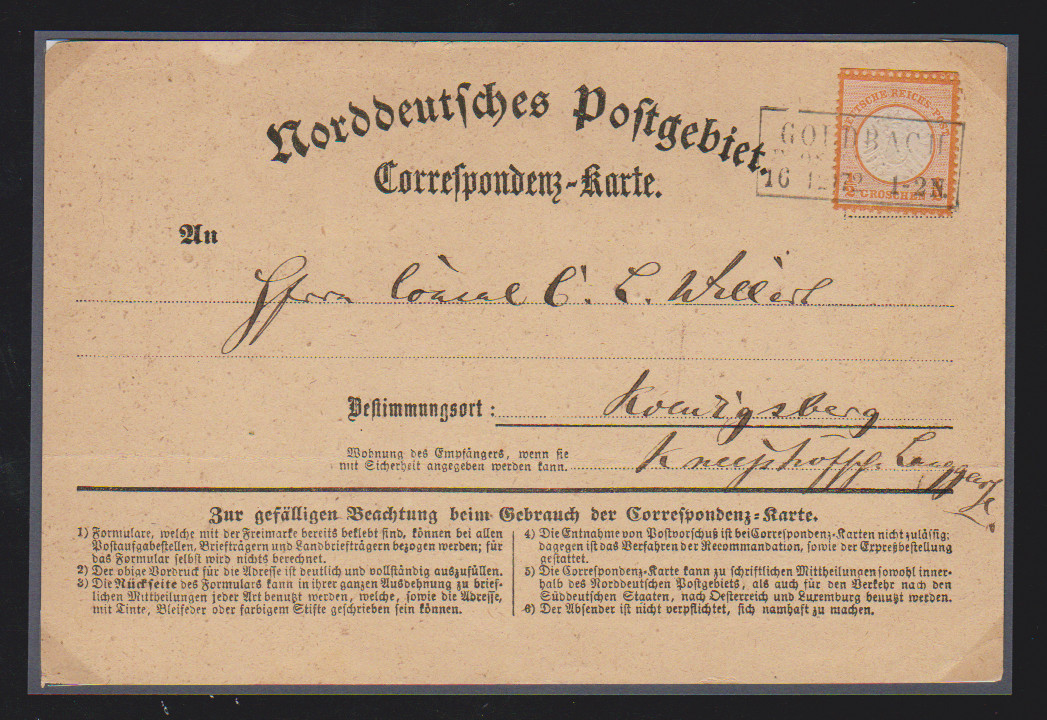 Norddeutsches Postgebiet.
Correspondenz-Karte.
DEUTSCHE REICHS-POST
GROSCHEN
GOLDBACH
16 12 72 1-2N.
An
Herrn Consul C. L. Willert
Bestimmungsort: Koenigsberg
Wohnung des Empfängers, wenn sie
mit Sicherheit angegeben werden kann. Kneiphöffsche Langgasse
Zur gefälligen Beachtung beim Gebrauch der Correspondenz-Karte.
1) Formulare, welche mit der Freimarke bereits beklebt sind, können bei allen
Postaufgabestellen, Briefträgern und Landbriefträgern bezogen werden; für
das Formular selbst wird nichts berechnet.
2) Der obige Vordruck für die Adresse ist deutlich und vollständig auszufüllen.
3) Die Rückseite des Formulars kann in ihrer ganzen Ausdehnung zu brief-
lichen Mittheilungen jeder Art benutzt werden, welche, sowie die Adresse,
mit Tinte, Bleifeder oder farbigem Stifte geschrieben sein können.
4) Die Entnahme von Postvorschuß ist bei Correspondenz-Karten nicht zulässig;
dagegen ist das Verfahren der Recommandation, sowie der Expreßbestellung
gestattet.
5) Die Correspondenz-Karte kann zu schriftlichen Mittheilungen sowohl inner-
halb des Norddeutschen Postgebiets, als auch für den Verkehr nach den
Süddeutschen Staaten, nach Oesterreich und Luxemburg benutzt werden.
6) Der Absender ist nicht verpflichtet, sich namhaft zu machen.